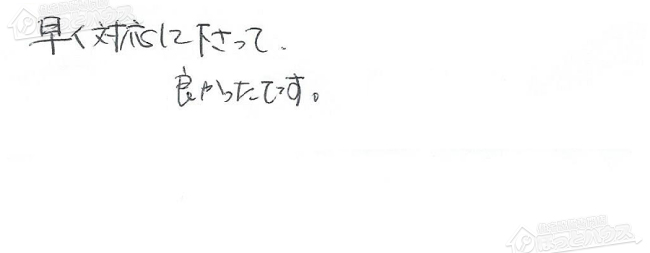 早く対応して下さって、
良かったです。